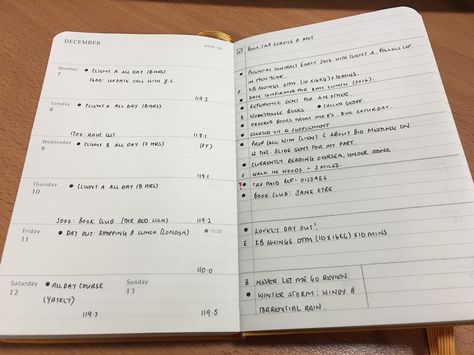 DECEMBER
week 50
Monday
7
• CLIENT A ALL DAY (8HRS)
1600: UPDATE CALL WITH
119.3
Tuesday
8
• CLIENT A ALL DAY (8HRS)
1700: HAIR CUT
118.1
Wednesday
9
• CLIENT B ALL DAY (7 HRS)
(FF)
119.1
Thursday
10
• CLIENT A ALL DAY (8HRS)
2000: BOOK CLUB (THE RED LION)
119.2
Friday
11
• DAY OUT SHOPPING & LUNCH (LONDON)
10:30
110.0
Saturday
12
• ALL DAY COURSE
(YATELY)
119.7
Sunday
13
119.5
BOOK CAR SERVICE & MOT
POTENTIAL CONTRACT EARLY 2016 WITH CLIENT A. FOLLOW UP
IN NEW YEAR.
E KB SWINGS OTM (10X16KG)X10MINS.
• DATE CONFIRMED FOR LUNCH (2016).
• REFERENCE SENT FOR
B WOREHOUSE BOOKS • CALLED GEOFF.
• ORDERED BOOKS FROM MR B'S. DUE SATURDAY.
• STARTED VIT D SUPPLEMENT
• PREP CALL WITH CLIENT C ABOUT BIG MEETING ON
12 DEC. SLIDE DONE FOR MY PART.
• CURRENTLY READING
E WALK IN WOODS - 3 MILES.
• TAX PAID REF: 0123456
• BOOK CLUB: JANE EYRE
• LOVELY DAY OUT!
E KB SWINGS OTM (10X16KG)X10MINS
B NEVER LET ME GO REVIEW.
• WINTER STORM: WINDY &
TORRENTIAL RAIN.